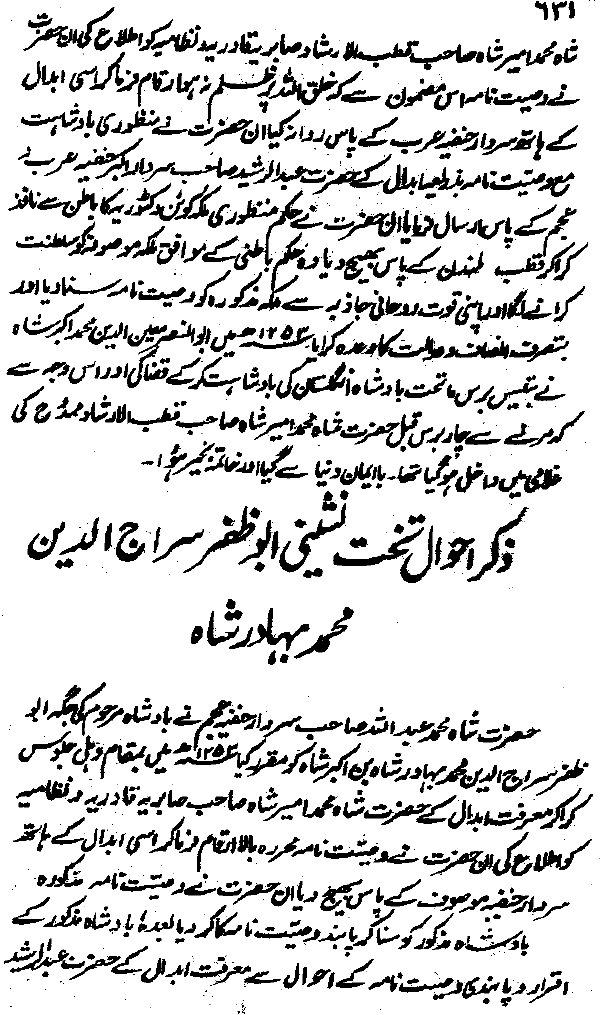 ٦٣١
شاہ محمد امیر شاہ صاحب قطب الارشاد صابریہ قادریہ و نظامیہ کو اطلاع کی ان حضرت
نے وصیت نامہ اس مضمون سے کہ خلق اللہ پر ظلم نہ ہو ارقام فرما کر اسی ابدال
کے ہاتھ سردار خفیہ عرب کے پاس روانہ کیا ان حضرت نے منظوری بادشاہت
مع وصیت نامہ بذریعہ ابدال کے حضرت عبدالرشید صاحب سردار اکبر خفیہ عرب و
عجم کے پاس ارسال فرمایا ان حضرت نے حکم منظوری ملکہ کوئن وکٹوریہ کا باطن سے نافذ
کرا کر قطب لندن کے پاس بھیج دیا وہ حکم باطنی کے موافق ملکہ موصوفہ کو سلطنت
کرانے لگا اور اپنی قوت روحانی جاذبہ سے ملکہ مذکورہ کو وصیت نامہ سنا دیا اور
بتصرف انصاف و عدالت کا وعدہ کرایا ١٢٥٣ھ میں ابوالنصر معین الدین محمد اکبر شاہ
نے بتیس برس ماتحت بادشاہ انگلستان کی بادشاہت کر کے قضا کی اور اس وجہ سے
کہ مرنے سے چار برس قبل حضرت شاہ محمد امیر شاہ صاحب قطب الارشاد ممدوح کی
غلامی میں داخل ہو گیا تھا۔ با ایمان دنیا سے گیا اور خاتمہ بخیر ہوا۔
ذکر احوال تخت نشینی ابو ظفر سراج الدین
محمد بہادر شاہ
حضرت شاہ محمد عبد اللہ صاحب سردار خفیہ عجم نے بادشاہ مرحوم کی جگہ ابو
ظفر سراج الدین محمد بہادر شاہ بن اکبر شاہ کو مقرر کیا ١٢٥٣ھ میں بمقام دہلی جلوس
کرا کر معرفت ابدال کے حضرت شاہ محمد امیر شاہ صاحب صابریہ قادریہ و نظامیہ
کو اطلاع کی ان حضرت نے وصیت نامہ محررہ بالا ارقام فرما کر اسی ابدال کے ہاتھ
سردار خفیہ موصوف کے پاس بھیج دیا ان حضرت نے وصیت نامہ مذکورہ
بادشاہ مذکور کو سنا کر پابند وصیت نامہ کا کر دیا بعدہٗ بادشاہ مذکور کے
اقرار و پابندی وصیت نامہ کے احوال سے معرفت ابدال کے حضرت عبدالرشید